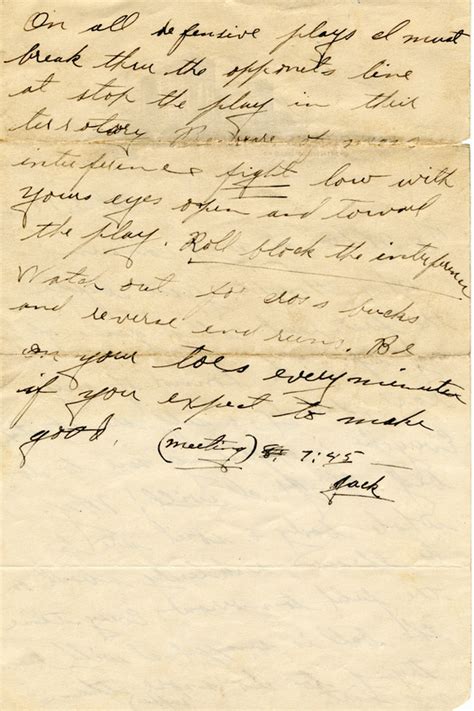 On all defensive plays I must
break thru the opponets line
at stop the play in their
terrotory Beware of mass
interference fight low with
yours eyes open and toward
the play. Roll block the interference.
Watch out for cross bucks
and reverse end runs. Be
on your toes every minute
if you expect to make
good. (meeting) 7:45
Jack